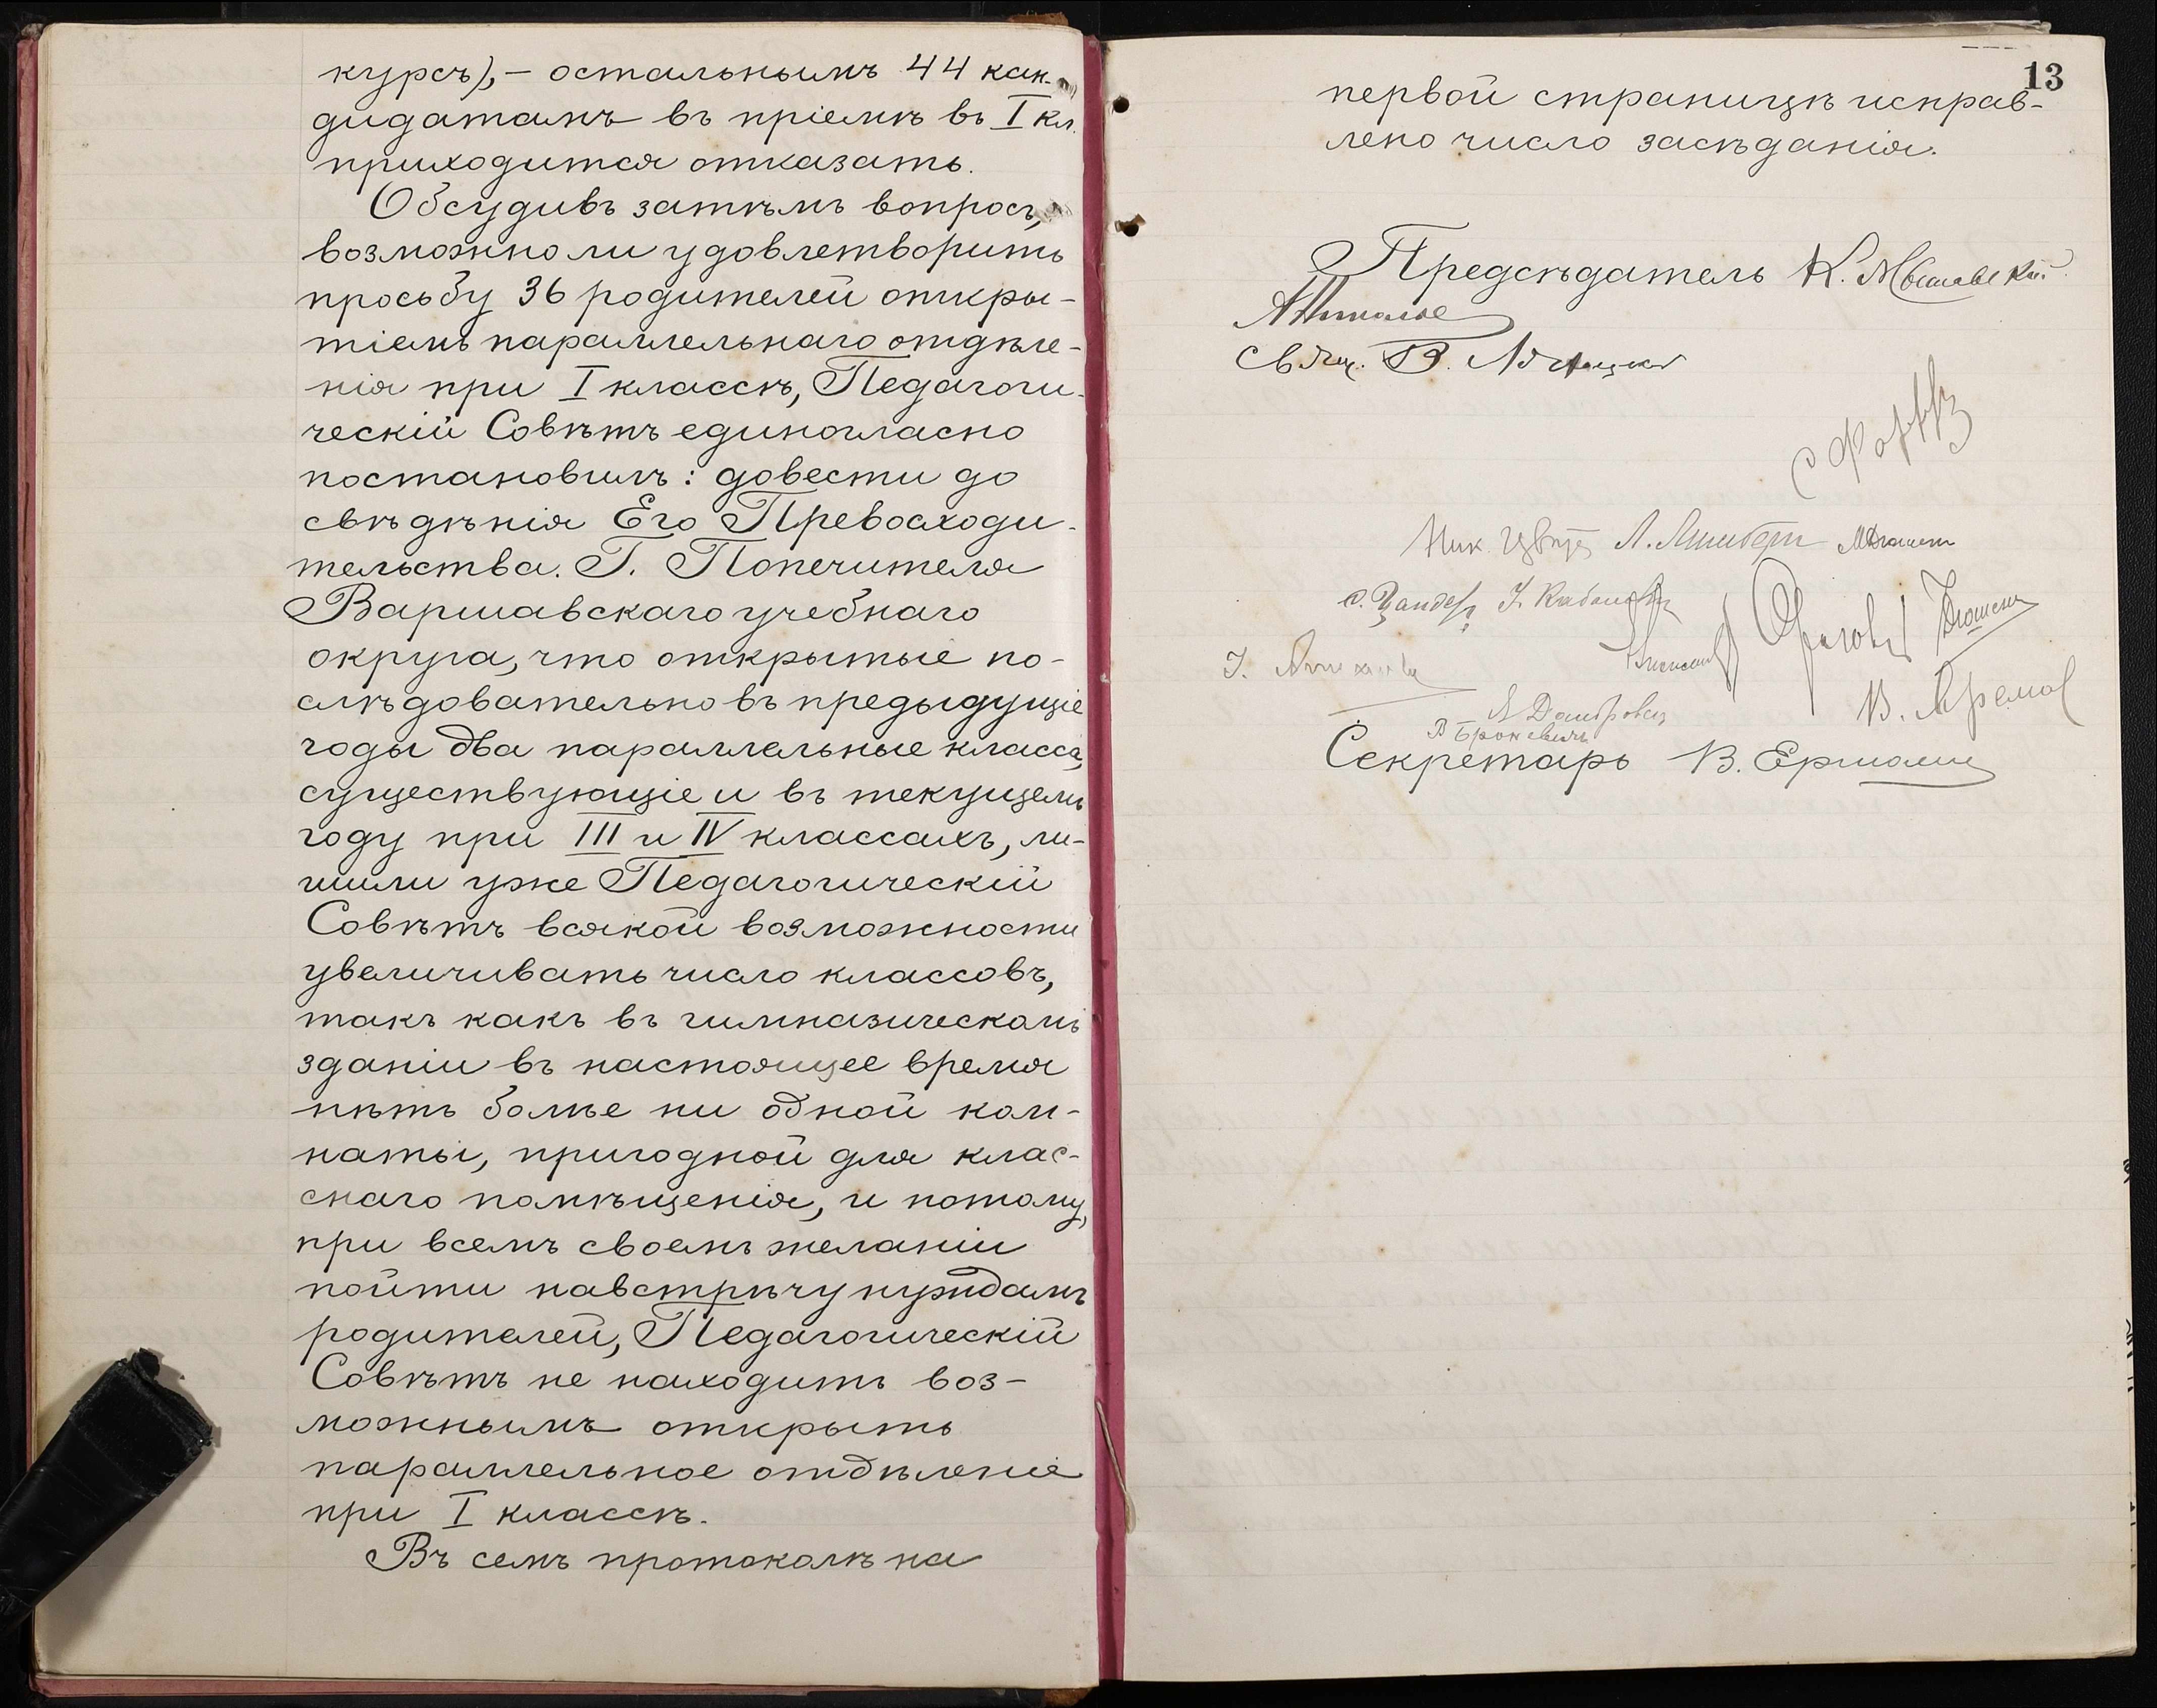 курсъ),- остальнымъ 44 кан-
дидатамъ въ пріемѣ въ I кл.
приходится отказать.
Обсудивъ затѣмъ вопросъ,
возможно ли удовлетворить
просьбу 36 родителей откры-
тіемъ параллельнаго отдѣле-
нія при I классѣ, Педагоги-
ческій Совѣтъ единогласно
постановилъ: довести до
свѣдѣнія Его Превосходи-
тельства. Г. Попечителя
Варшавскаго учебнаго
округа, что открытые по-
слѣдовательно въ предыдущіе
годы два параллельные класса,
существующіе и въ текущемъ
году при III и IV классахъ, ли-
шили уже Педагогическій
Совѣтъ всякой возможности
увеличивать число классовъ,
такъ какъ въ гимназическомъ
зданіи въ настоящее время
нѣтъ болѣе ни одной ком-
наты, пригодной для клас-
снаго помѣщенія, и потому,
при всемъ своемъ желаніи
пойти навстрѣчу нуждамъ
родителей, Педагогическій
Совѣтъ не находитъ воз-
можнымъ открыть
параллельное отдѣленіе
при I классѣ.
Въ семъ протоколѣ на
13
первой страницѣ исправ-
лено число засѣданія.
Предсѣдатель К.
Свящ. В.
Ник.
С. Цандеръ
В. Броневичъ
Секретарь В.